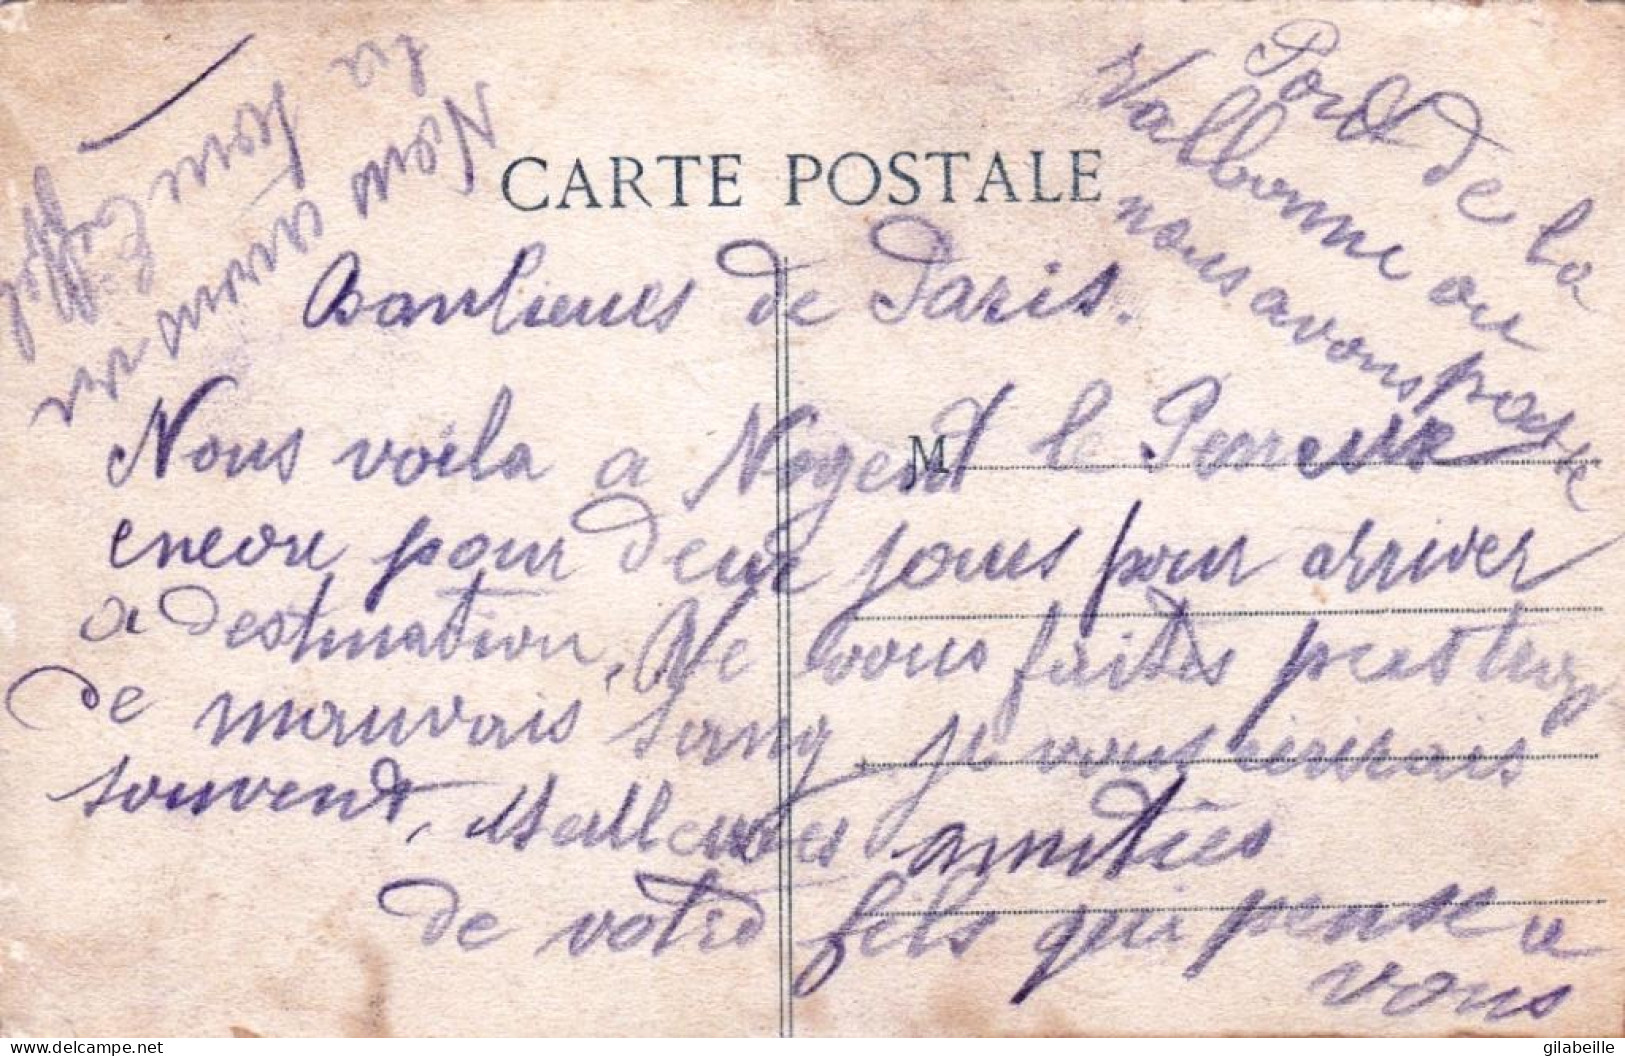 CARTE POSTALE
Banlieues de Paris.
Nous voila a Nogent le Perreux
encore pour deux jours pour arriver
a destination, Ne vous faites pas trop
de mauvais sang. je vous ecrirais
souvent, Meilleures amitiés
de votre fils qui pense a
vous
M
Pont de la
Valbonne ou
nous avons passe
Nous avons vu
la Tour Eiffel
delcampe.net
gilabeille